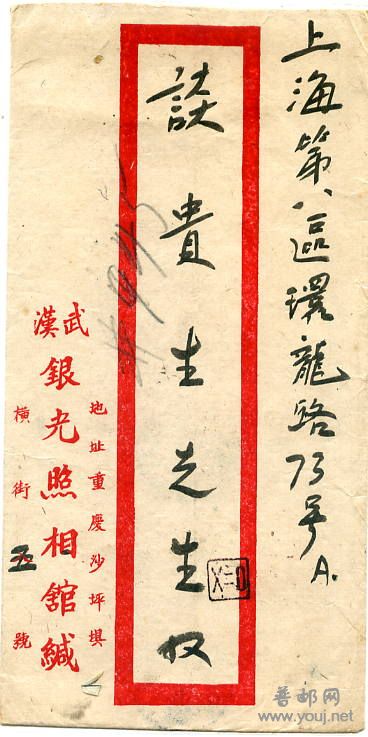 上海第八區環龍路73号A.
貴生先生收
地址重慶沙坪垻
武漢
銀光照相舘緘
橫街五號
普邮网
www.youj.net